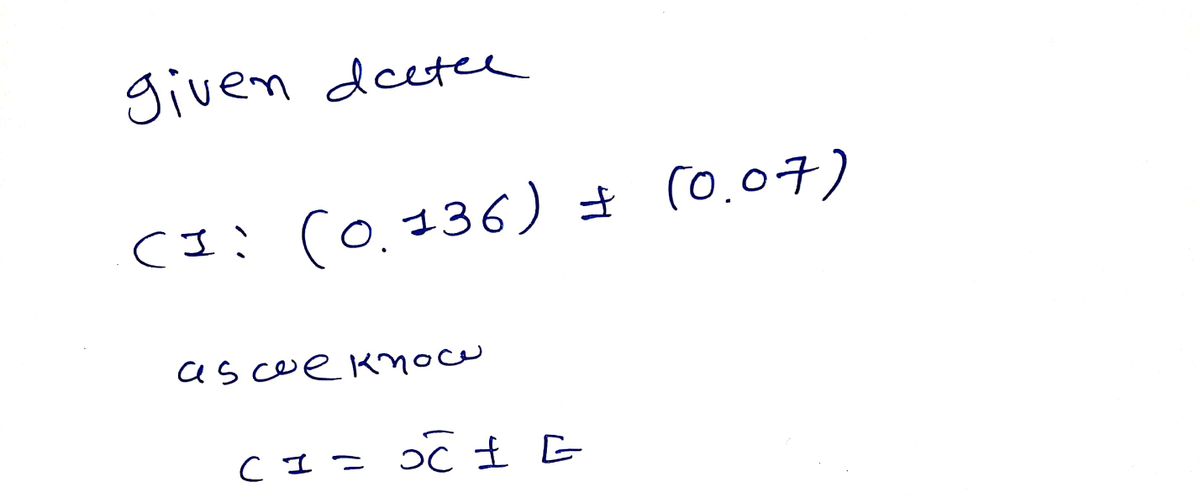 given data
CI: (0.136) ± (0.07)
as we know
CI = x̄ ± E